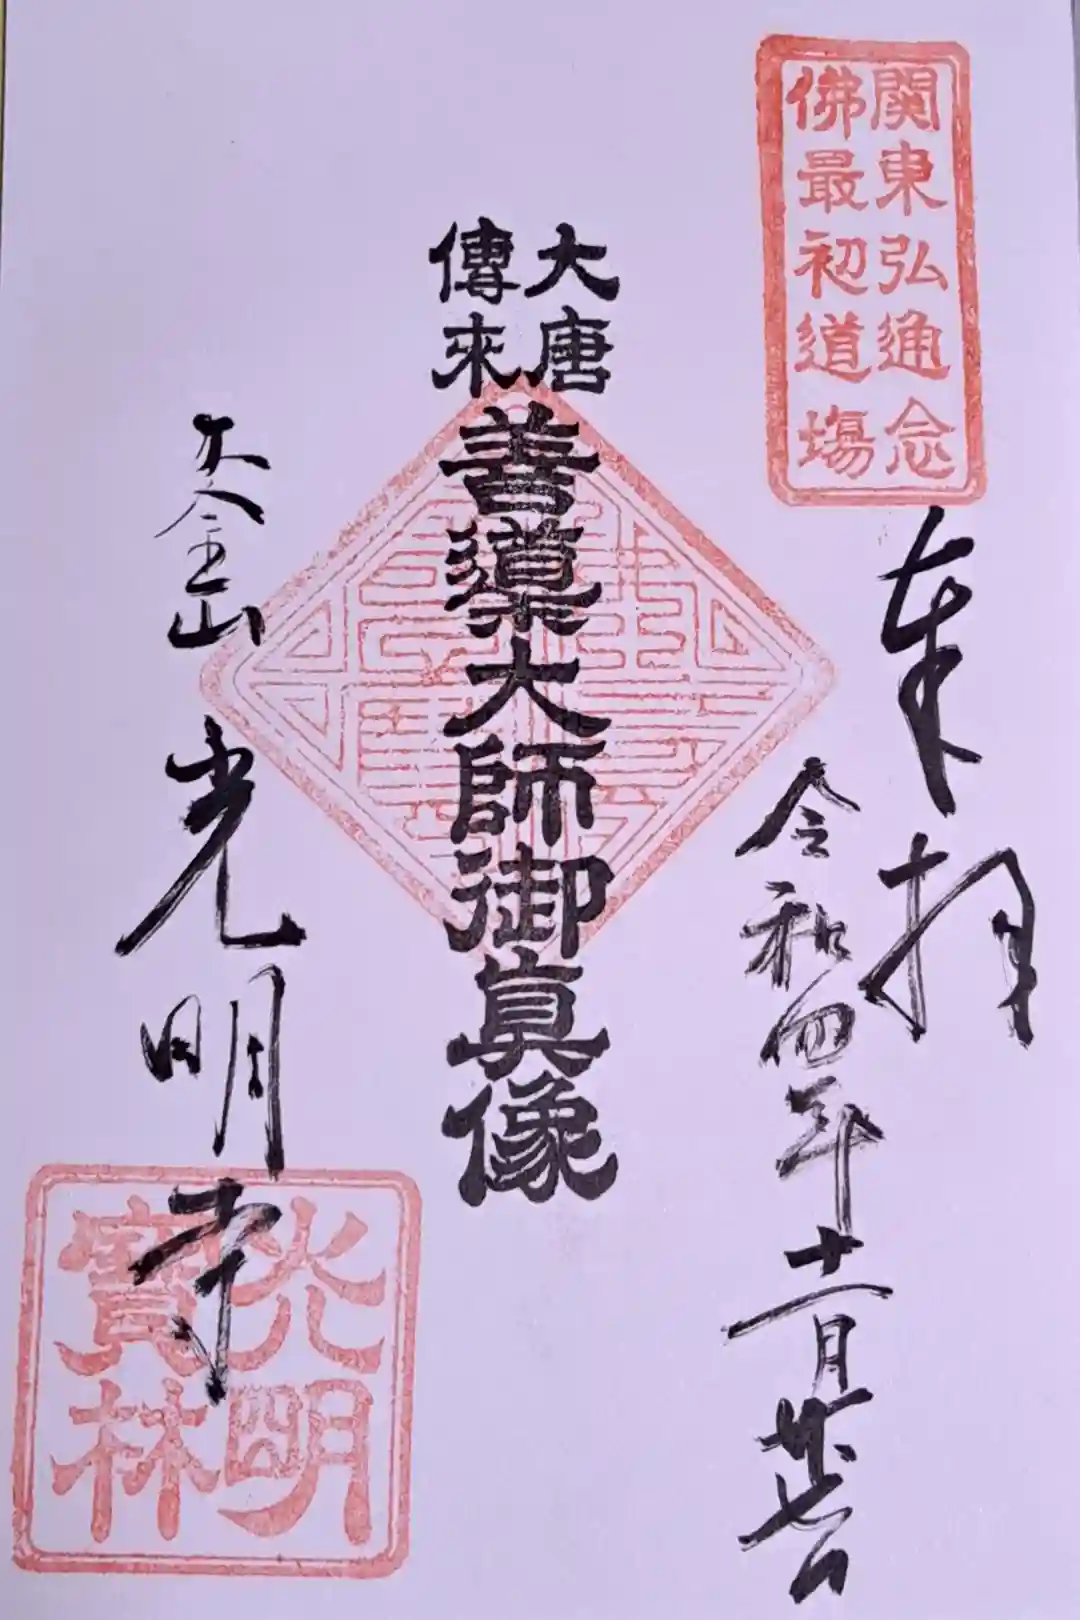 関東弘通念
佛最初道場
奉拝
令和四年十一月
大唐
傳來
善導大師御真像
大金山
光明寺
光明
寶林